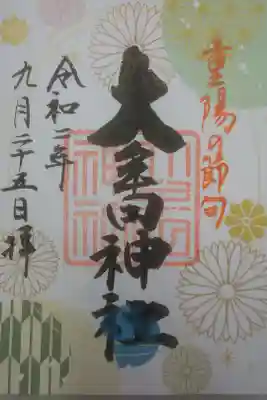 重陽の節句
大
神社
令和二年
九月二十五日拝